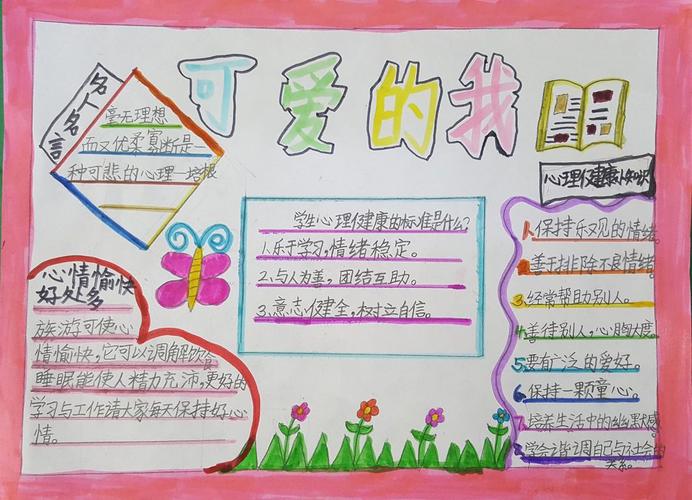 可爱的我
名人名言
毫无理想
而又优柔寡断是一
种可悲的心理—培根
学生心理健康的标准是什么?
1.乐于学习,情绪稳定。
2.与人为善,团结互助。
3.意志健全,树立自信。
心理健康小知识
1.保持乐观的情绪。
2.善于排除不良情绪
3.经常帮助别人。
4.善待别人,心胸大度。
5.要有广泛的爱好。
6.保持一颗童心。
7.培养生活中的幽默感
8.学会谐调自己与社会的
关系。
心情愉快
好处多
旅游可使心
情愉快,它可以调解饮食
睡眠能使人精力充沛,更好的
学习与工作请大家每天保持好心
情。